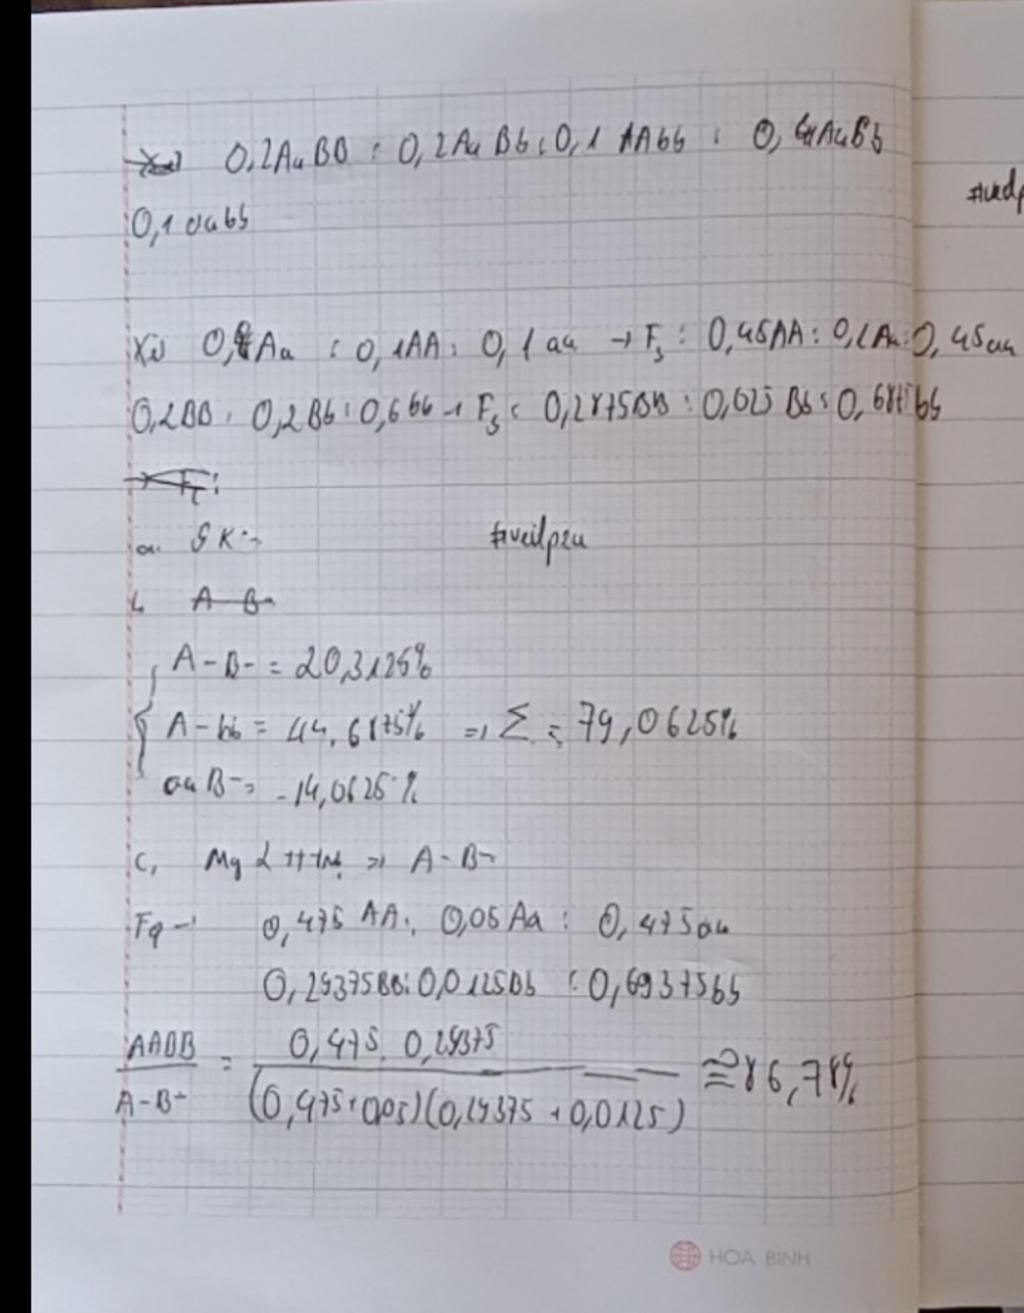 0,2AaBB : 0,2AaBb : 0,1 AAbb : 0,4AaBb
#veilp
0,1 aabb
Xét 0,8Aa : 0,1AA : 0,1 aa → F3 : 0,45AA : 0,1Aa : 0,45aa
0,2BB : 0,2Bb : 0,6bb → F3 : 0,2875BB : 0,025 Bb : 0,6875bb
a. 9 K
#veilpzu
b. A-B-
A-B- = 20,3125%
A-bb = 44,6875% => Σ = 79,0625%
aaB- = 14,0625%
c, Mg 2 tt => A-B-
F4 → 0,475 AA : 0,05 Aa : 0,475aa
0,29375BB : 0,0125Bb : 0,69375bb
AABB / A-B- = 0,475 . 0,29375 / (0,475+0,05)(0,29375 + 0,0125) ≅ 86,78%
HÒA BÌNH